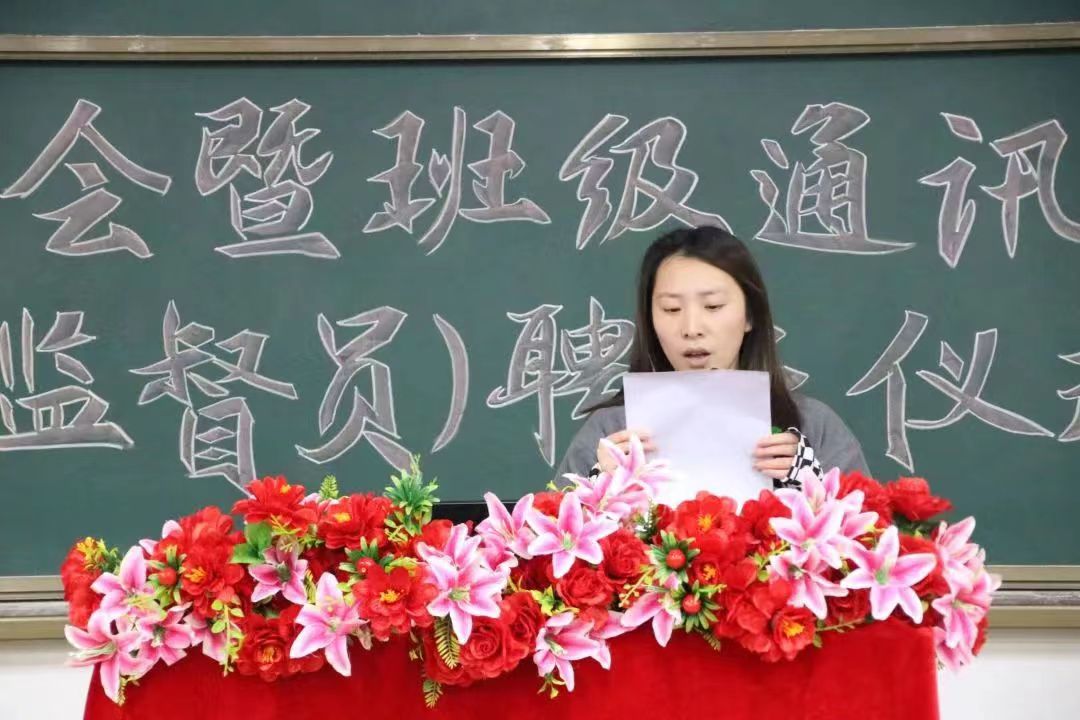 会暨班级通讯
监督员)聘 仪